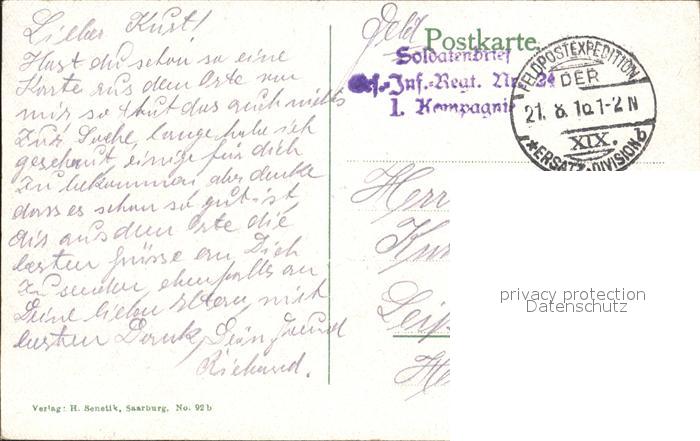 Lieber Kurt!
Hast du schon so eine
Karte aus dem Orte von
mir so thut das auch nichts
zur Sache, lange habe ich
geschaut einige für dich
zu bekommen aber denke
dass es schon so gut ist
dir aus dem Orte die
besten Grüsse an Dich
zu senden, ebenfalls an
Deine lieben Eltern, mit
besten Dank, Dein Freund
Richard.
Verlag: H. Senetik, Saarburg, No. 92b
Feld
Postkarte
Soldatenbrief
Inf.-Regt. Nr. 24
1. Kompagnie
FELDPOSTEXPEDITION
DER
21. 8. 16. 1-2 N
XIX.
*ERSATZ-DIVISION
Herr
Kur
Leip
privacy protection
Datenschutz